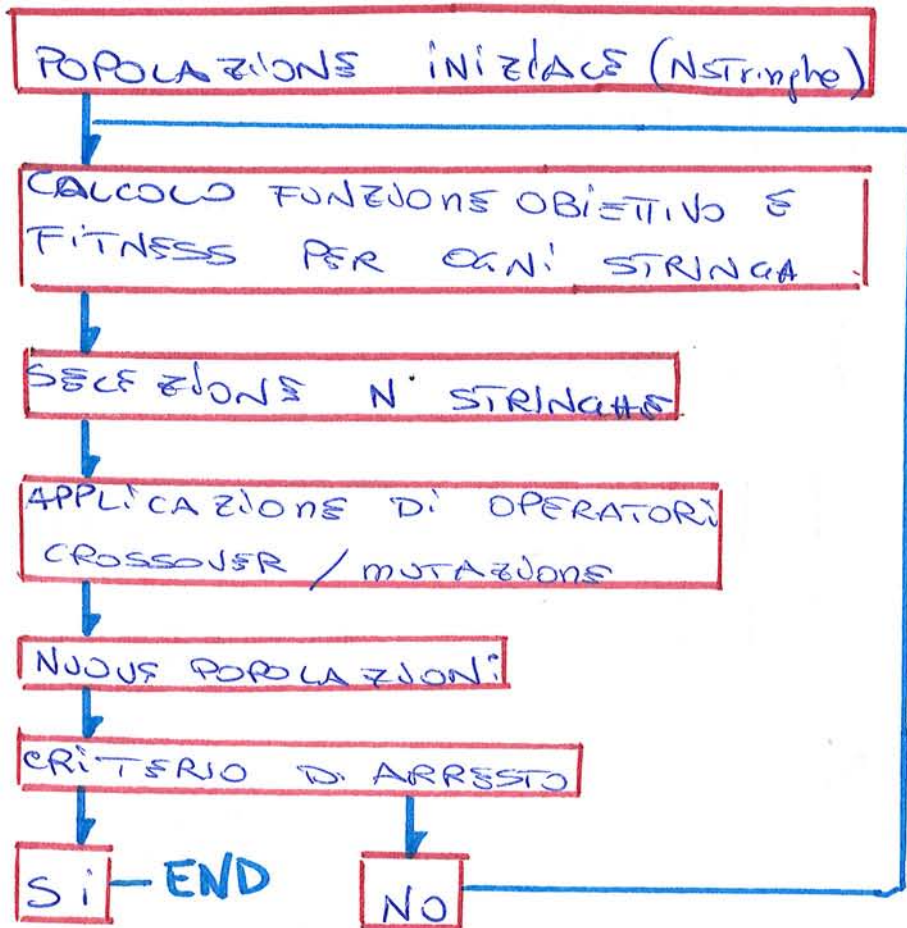 POPOLAZIONE INIZIALE (N Stringhe)
CALCOLO FUNZIONE OBIETTIVO E
FITNESS PER OGNI STRINGA
SELEZIONE N STRINGHE
APPLICAZIONE DI OPERATORI
CROSSOVER / MUTAZIONE
NUOVE POPOLAZIONI
CRITERIO DI ARRESTO
Si - END
NO